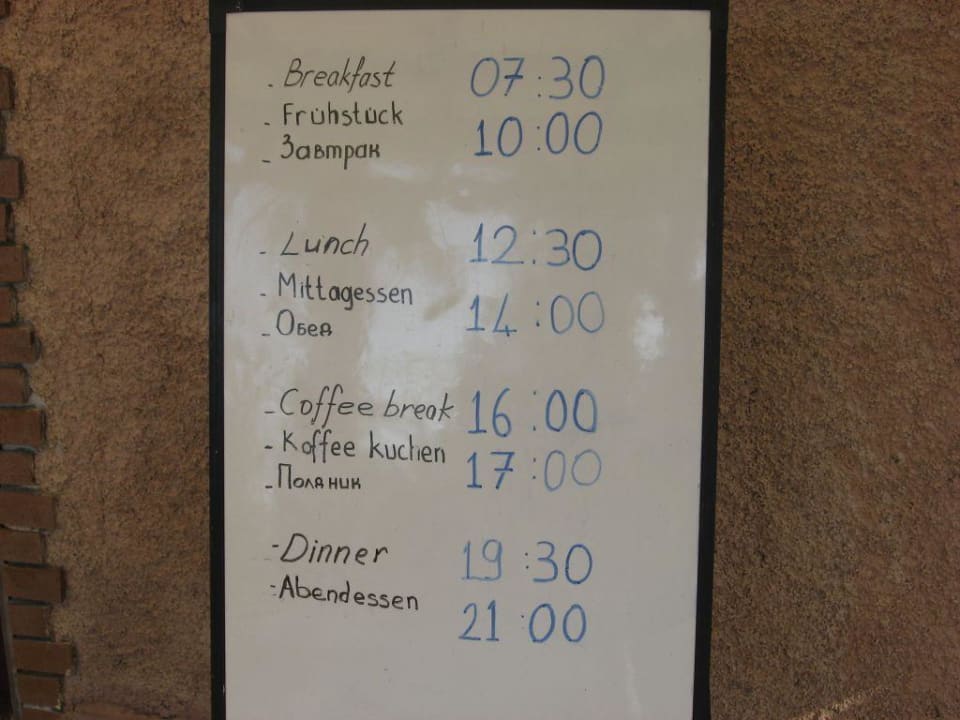 - Breakfast 07:30
- Frühstück 10:00
- Завтрак
- Lunch 12:30
- Mittagessen 14:00
- Обед
- Coffee break 16:00
- Koffee kuchen 17:00
- Поляник
- Dinner 19:30
- Abendessen 21:00